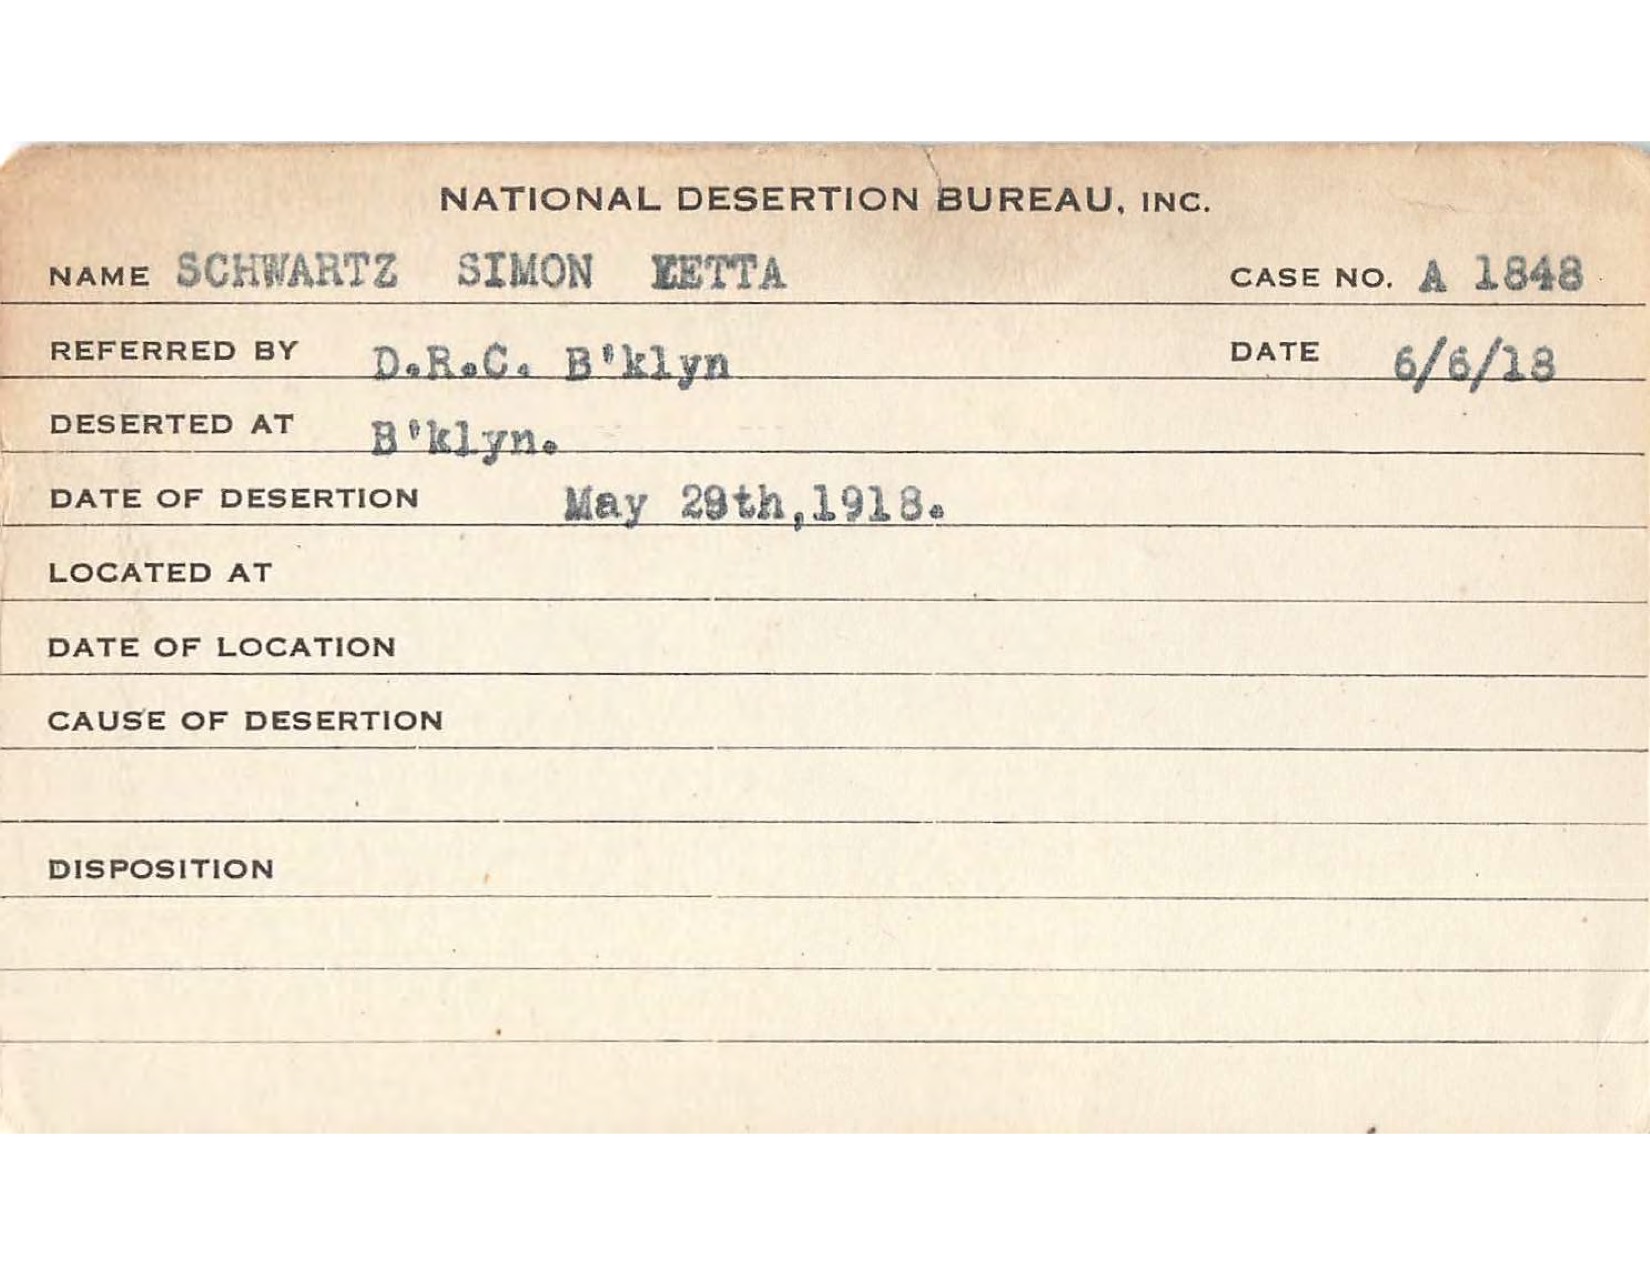 NATIONAL DESERTION BUREAU, INC.
NAME SCHWARTZ SIMON CASE NO. A 1848
REFERRED BY D.R.C. B'klyn DATE 6/6/18
DESERTED AT B'klyn.
DATE OF DESERTION May 29th,1918.
LOCATED AT
DATE OF LOCATION
CAUSE OF DESERTION
DISPOSITION